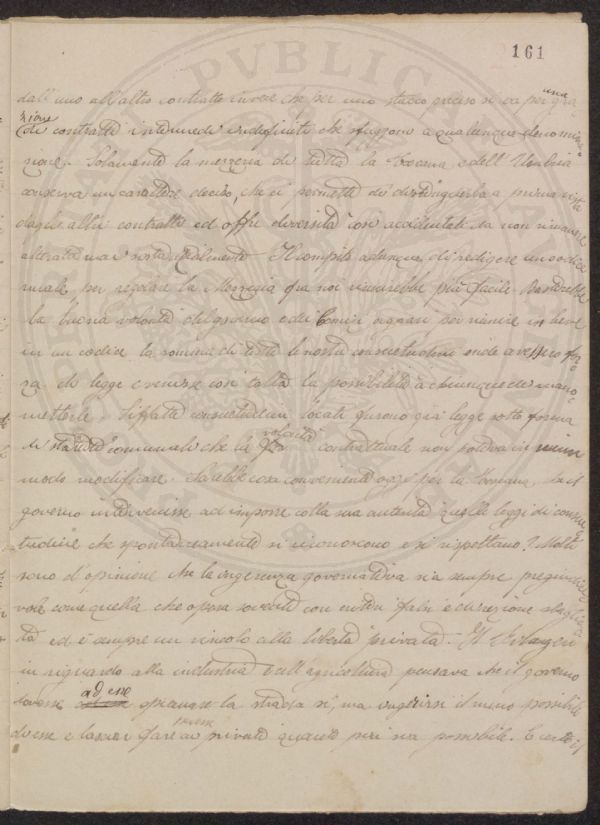 161
dall'uno all'altro contratto invece che per uno stacco preciso si va per una gra
zione di contratti intermedi indefiniti che sfuggono a qualunque denomina
zione. Solamente la mezzeria di tutta la Toscana e dell'Umbria
conserva un carattere deciso, che ci permette di distinguerla a prima vista
dagli altri contratti ed offre diversità così accidentali da non rimanere
alterata mai sostanzialmente. Il compito adunque di redigere un codice
rurale per regolare la Mezzeria fra noi riuscirebbe più facile. Basterebbe
la buona volontà del governo e di Comizi agrari per riunire in breve
in un codice la somma di tutte le nostre consuetudini onde avessero for
za di legge e venisse così tolta la possibilità a chiunque di mano
metterle. Siffatte consuetudini locali furono già legge sotto forma
di statuti comunali che la volontà contrattuale non poteva in niun
modo modificare. Sarebbe cosa conveniente oggi per la Romagna, se il
governo intervenisse ad imporre colla sua autorità quelle leggi di consue
tudine che spontaneamente si riconoscono e si rispettano? Molti
sono d'opinione che la ingerenza governativa sia sempre pregiudicie
vole come quella che opera sovente con criteri falsi e direzione sbaglia
ta ed è sempre un vincolo alla libertà privata. Il
in riguardo alla industria dell'agricoltura pensava che il governo
dovesse ad esse spianare la strada sì, ma ingerirsi il meno possibile
di esse e lasciar fare ai privati quanto più sia possibile. E certo il